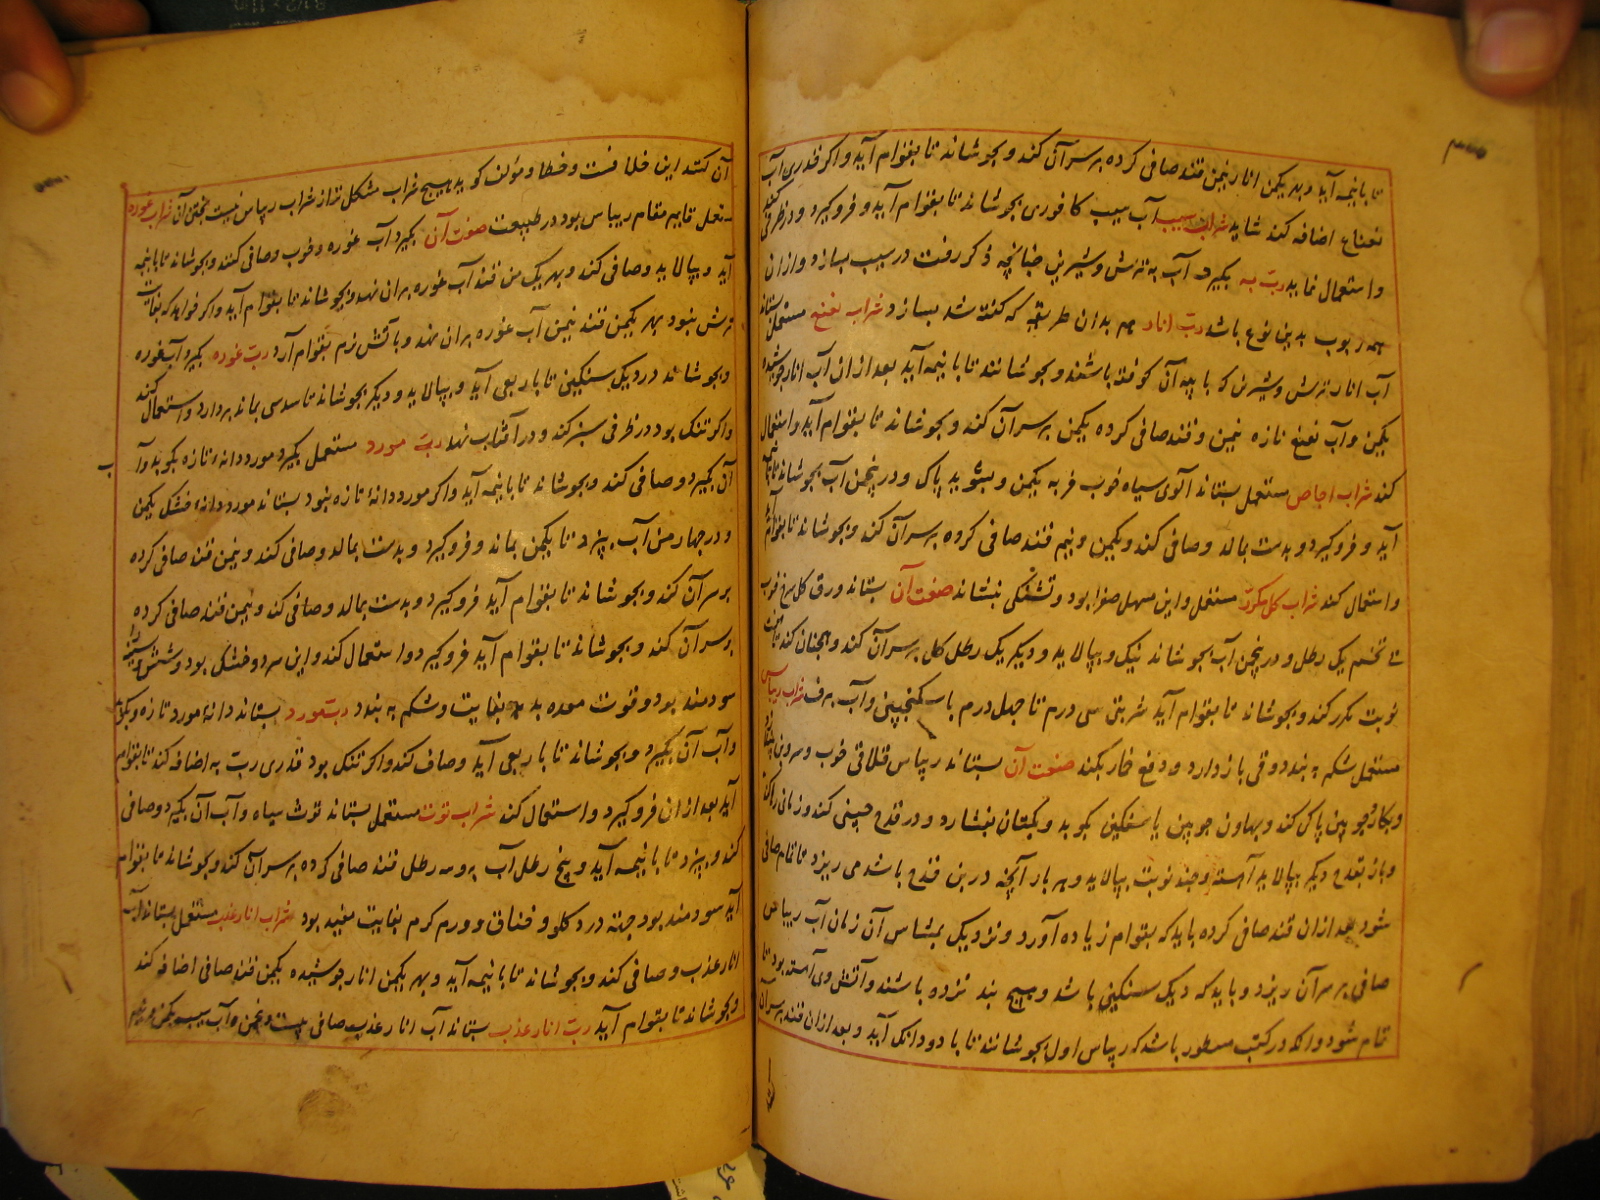 تا بانیمه آید و بهر یکمن انار نیمن قند صافی کرده بر سر آن کند و بجوشاند تا بقوام آید و اکر قدری آب
نعناع اضافه کند شاید شراب سیب آب سیب کافوری بجوشاند تا بقوام آید و فروکیرد و در ظرفی کند
و استعمال نماید ربّ به بکیرد آب به ترش و شیرین چنانچه ذکر رفت در سیب بسازد و ازان
همه ربوب بدین نوع باشد ربّ انار هم بدان طریق که کفته شد بسازد شراب نعنع مستعمل بستاند
آب انار ترش و شیرین که با پیه آن کوفته باشند و بجوشانند تا بانیمه آید بعد ازان آب انار جوشیده
یکمن و آب نعنع تازه نیمن و قند صافی کرده یکمن بر سر آن کند و بجوشاند تا بقوام آید و استعمال
کند شراب اجاص مستعمل بستاند آلوی سیاه خوب فربه یکمن و بشوید پاک و در پنجمن آب بجوشاند تا
آید و فروکیرد و بدست بمالد و صافی کند و یکمن و نیم قند صافی کرده بر سر آن کند و بجوشاند تا بقوام
و استعمال کند شراب کل مکرّر مستعمل و این مسهل صفرا بود و تشنکی بنشاند صنعت آن بستاند ورق کل سرخ خوب
بی تخم یک رطل و در پنجمن آب بجوشاند نیک و بپالاید و دیکر یک رطل کل بر سر آن کند و همچنان کند تا
نوبت مکرر کند و بجوشاند تا بقوام آید شربتی سی درم تا چهل درم با سکنجبین و آب برف شراب ریباس
مستعمل شکم ببندد و قی باز دارد و دفع خمار بکند صنعت آن بستاند ریباس قلاقی خوب و سر و بن
و بکارد چوبین پاک کند و بهاون چوبین یا سنکین بکوبد و بکتان بفشارد و در قدح چینی کند و زمانی رها کند
و باز بقدح دیکر بپالاید آهسته و چند نوبت بپالاید و هر بار آنچه در بن قدح باشد می ریزد تا تمام صافی
شود بعد ازان قند صافی کرده باید که بقوام زیاده آورد و نزدیک بمشاس آن زمان آب ریباس
صافی بر سر آن ریزد و باید که دیک سنکین باشد و هیچ بند نزده باشند و آتش وی آهسته بود تا
تمام شود و انکه در کتب مسطور باشد که ریباس اول بجوشانند تا با دو دانک آید و بعد ازان قند بر سر آن
آن کنند این خلافست و خطا و مؤلف کوید هیچ شراب مشکل تر از شراب ریباس نیست پختن آن شراب غوره
قایم مقام ریباس بود در طبیعت صنعت آن بکیرد آب غوره و خوب و صافی کنند و بجوشاند تا بانیمه
آید و بپالاید و صافی کند و بهر یک من قند آب غوره بران نهد و بجوشاند تا بقوام آید و اکر خواهد که بغایت
ترش نبود بهر یکمن قند نیمن آب غوره بران نهد و بآتش نرم بقوام آرد ربّ غوره بکیرد آب غوره
و بجوشاند در دیک سنکین تا باربعی آید و بپالاید و دیکر بجوشاند تا سدسی بماند بردارد و استعمال کند
و اکر تنک بود در ظرفی سبز کند و در آفتاب نهد ربّ مورد مستعمل بکیرد مورد دانهٔ تازه بکوبد و آب
آن بکیرد و صافی کند و بجوشاند تا بانیمه آید و اکر مورد دانهٔ تازه نبود بستاند مورد دانهٔ خشک یکمن
و در چهار من آب بپزد تا یکمن بماند و فروکیرد و بدست بمالد و صافی کند و نیمن قند صافی کرده
بر سر آن کند و بجوشاند تا بقوام آید فروکیرد و بدست بمالد و صافی کند و نیمن قند صافی کرده
بر سر آن کند و بجوشاند تا بقوام آید فروکیرد و استعمال کند و این سرد و خشک بود و شش و سینه را
سودمند بود و قوت معده بدهد بغایت و شکم ببندد ربّ مورد بستاند دانهٔ مورد تازه و بکوبد
و آب آن بکیرد و بجوشاند تا باربعی آید و صاف کند و اکر تنک بود قدری ربّ به اضافه کند تا بقوام
آید بعد ازان فروکیرد و استعمال کند شراب توت مستعمل بستاند توث سیاه و آب آن بکیرد و صافی
کند و بپزد تا بانیمه آید و پنج رطل آب بر سه رطل قند صافی کرده بر سر آن کند و بجوشاند تا بقوام
آید سودمند بود جهت درد کلو و خناق و ورم کرم بغایت مفید بود شراب انار عذب مستعمل بستاند آب
انار عذب و صافی کند و بجوشاند تا بانیمه آید و بهر یکمن انار جوشیده یکمن قند صافی اضافه کند
و بجوشاند تا بقوام آید ربّ انار عذب بستاند آب انار عذب صافی بیست و پنج من و آب سیب یکمن